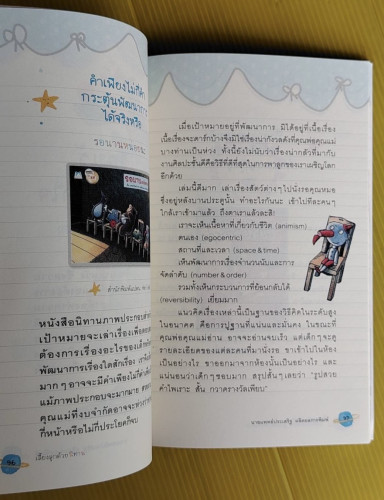 คำเพียงไม่กี่คำ
กระตุ้นพัฒนาการ
ได้จริงหรือ
รอนานหน่อยนะ
หนังสือนิทานภาพประกอบ
เป้าหมายจะเล่าเรื่องเพื่อ
ต้องการเรื่องอะไรของเด็ก
พัฒนาการเรื่องใดสักเรื่อง
มากๆ อาจจะมีคำเพียงไม่กี่คำ
แม้ภาพประกอบจะมากมาย
คุณแม่ที่งบจำกัดอาจจะ
กี่หน้าหรือไม่กี่ประโยคก็จบ
96
เลี้ยงลูกด้วยนิทาน
เมื่อเป้าหมายอยู่ที่พัฒนาการ มิได้อยู่ที่เนื้อเรื่อง
เนื้อเรื่องจะดาร์กบ้างจึงมิใช่เรื่องน่ากังวลดังที่คุณพ่อคุณแม่
บางท่านเป็นห่วง ทั้งนี้ยังไม่นับว่าเรื่องน่ากลัวที่มากับ
งานศิลปะชั้นดีคือวิธีที่ดีที่สุดในการพาลูกของเราเผชิญโลก
อีกด้วย
เล่มนี้ดีมาก เล่าเรื่องสัตว์ต่างๆ ไปนั่งรอคุณหมอ
ซึ่งอยู่หลังบานประตูนั้น ทำอะไรกันนะ เข้าไปทีละคนๆ
ใกล้เราเข้ามาแล้ว ถึงตาเราแล้วละสิ!
เราจะเห็นเนื้อหาที่เกี่ยวกับชีวิต (animism)
ตนเอง (egocentric)
สถานที่และเวลา (space & time)
เห็นพัฒนาการเรื่องจำนวนนับและการ
จัดลำดับ (number & order)
รวมทั้งเห็นกระบวนการที่ย้อนกลับได้
(reversibility) เยี่ยมมาก
แนวคิดเรื่องเหล่านี้เป็นฐานของวิธีคิดในระดับสูง
ในอนาคต คือการปูฐานที่แน่นและมั่นคง ในขณะที่
คุณพ่อคุณแม่อ่าน อาจจะอ่านจบเร็ว แต่เด็กๆ จะดู
รายละเอียดของแต่ละคนที่มานั่งรอ ขาเข้าไปในห้อง
เป็นอย่างไร ขาออกมาจากห้องนั้นเป็นอย่างไร และ
แน่นอนว่าเด็กๆ ชอบมาก สรุปสั้นๆ เลยว่า "รูปสวย
คำไพเราะ สั้น กวาดรางวัลเพียบ"
นายแพทย์ประเสริฐ ผลิตผลการพิมพ์